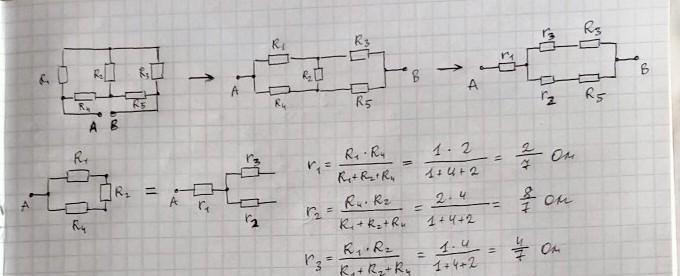 R₁ R₂ R₃ R₄ R₅ A B → A R₁ R₂ R₃ R₄ R₅ B → A r₁ r₃ R₃ r₂ R₅ B
A R₁ R₂ R₄ = A r₁ r₃ r₂
r₁ = R₁ · R₄ / R₁+R₂+R₄ = 1 · 2 / 1+4+2 = 2/7 Ом
r₂ = R₄ · R₂ / R₁+R₂+R₄ = 2 · 4 / 1+4+2 = 8/7 Ом
r₃ = R₁ · R₂ / R₁+R₂+R₄ = 1 · 4 / 1+4+2 = 4/7 Ом